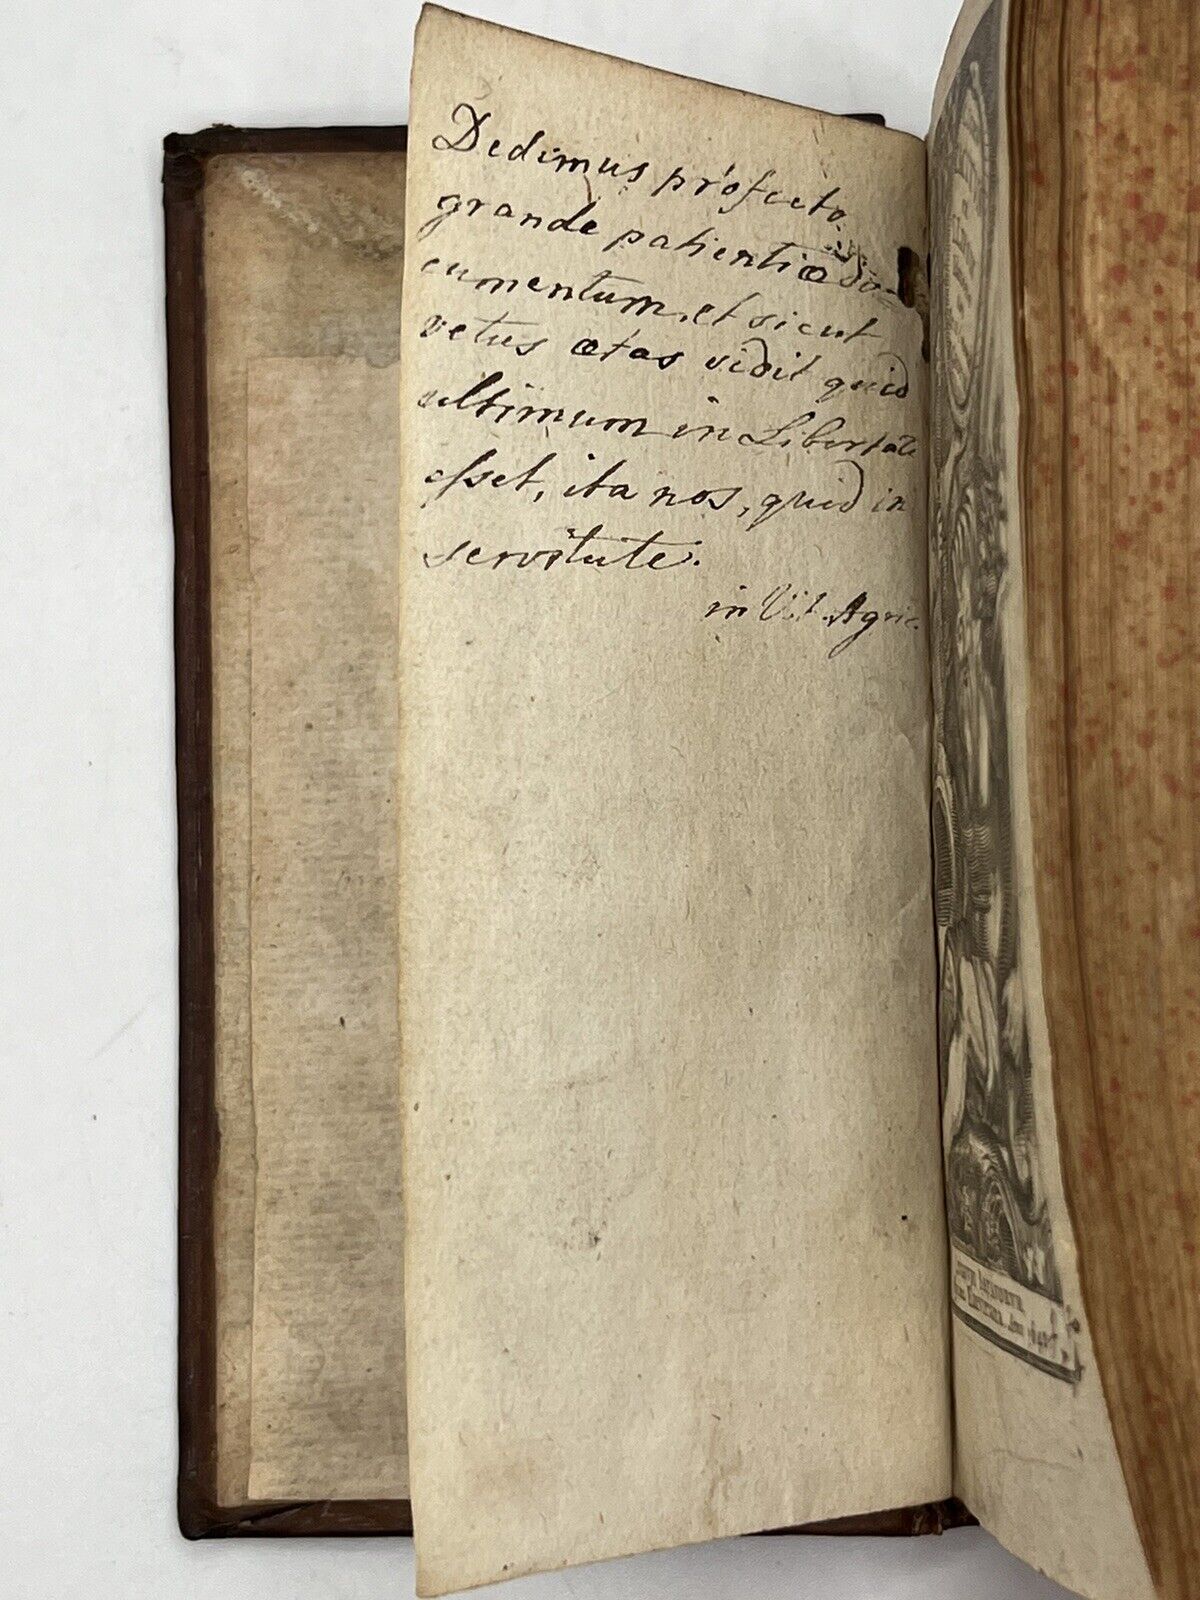 Dedimus profecto
grande patientiæ do-
cumentum, et sicut
vetus ætas vidit quid
ultimum in Libertate
esset, ita nos, quid in
servitute.
in Vit. Agric.
LUGD. BATAVORUM,
Ann 164